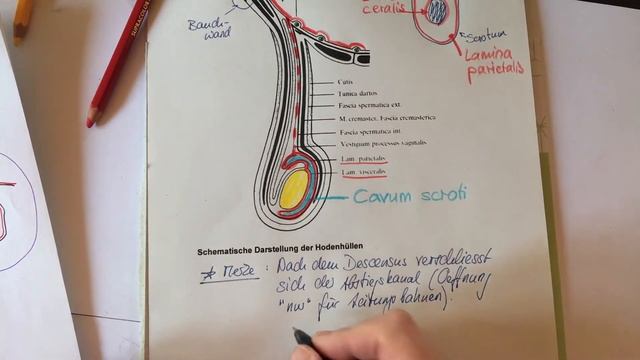 SUPRACOLOR
Bauch-
wand
ceralis
Scrotum
Lamina
parietalis
Cutis
Tunica dartos
Fascia spermatica ext.
M. cremaster, Fascia cremasterica
Fascia spermatica int.
Vestigium processus vaginalis
Lam. parietalis
Lam. visceralis
Cavum scroti
Schematische Darstellung der Hodenhüllen
* Merke : Nach dem Descensus verschliesst
sich der Abstiegskanal (Oeffnung
"nur" für Leitungsbahnen).